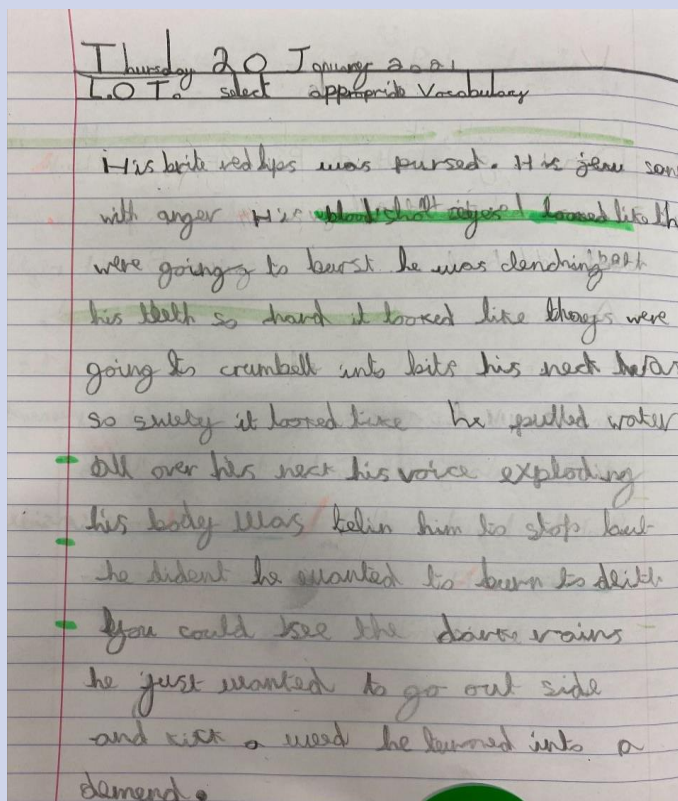 Thursday 20 January 2021
L.O T. select appropride Vocabulary
His brite red lips was pursed. His
with anger His bloodshott eiyes looked like th
were going to burst he was clenching
his teeth so hard it looked like thays were
going to crumbell into bits his neck was
so swety it looked like he pulled water
all over his neck his voice exploding
his body was telin him to stop but
he dident he wanted to burn to deith
you could see the darke vains
he just wanted to go out side
and kick a weed he turned into a
demend.